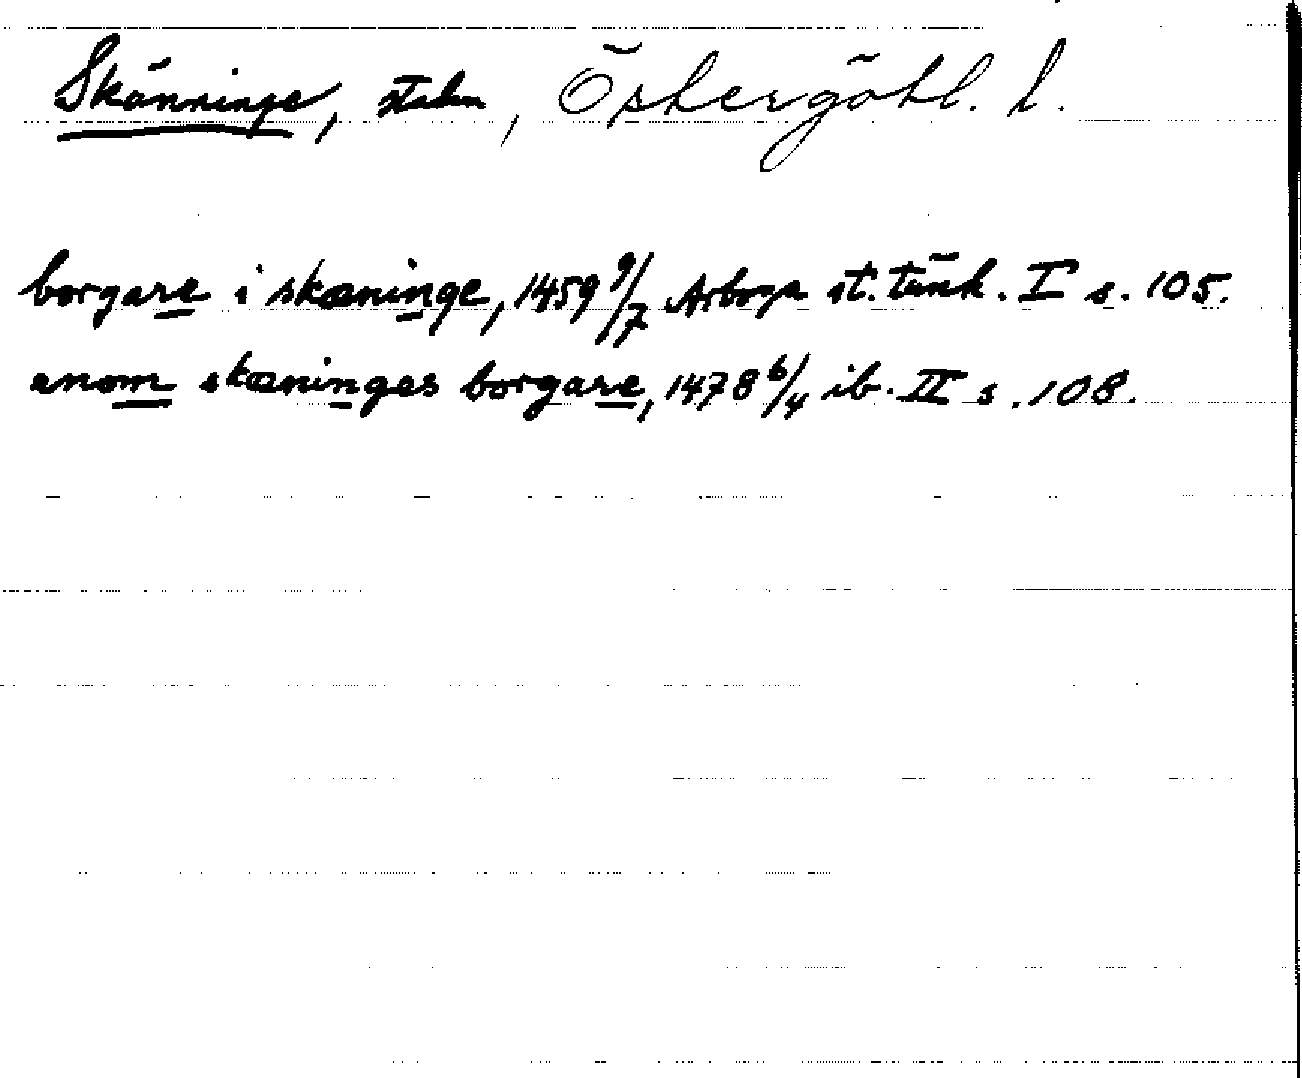 Skänninge, staden, Östergötl. l.
borgare i skæninge, 1459 9/7 Arboga st. tänk. I s. 105.
anom skæninges borgare, 1478 6/4 ib. II s. 108.